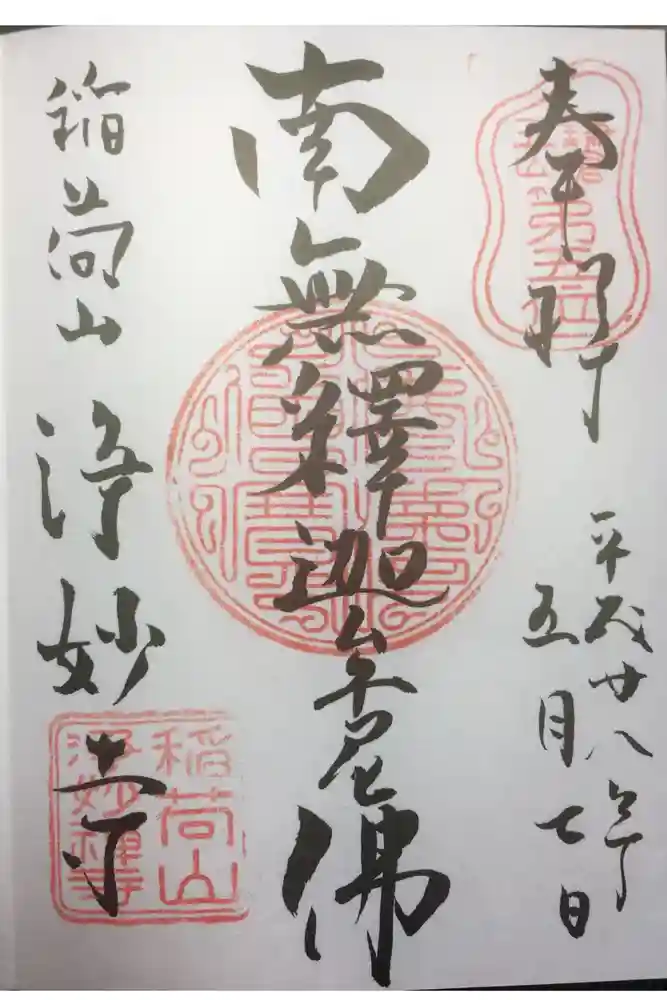 奉拝
平成廿八年
五月七日
南無釋迦牟尼佛
稲荷山 浄妙寺
稲荷山
浄妙禅寺